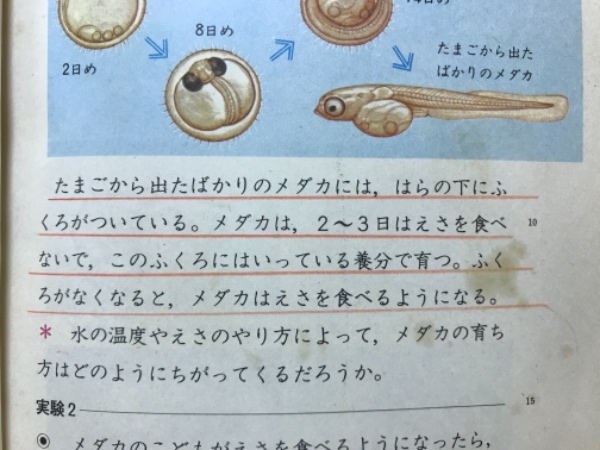 14日め
8日め
2日め
たまごから出た
ばかりのメダカ
たまごから出たばかりのメダカには，はらの下にふ
くろがついている。メダカは，2〜3日はえさを食べ
10
ないで，このふくろにはいっている養分で育つ。ふく
ろがなくなると，メダカはえさを食べるようになる。
* 水の温度やえさのやり方によって，メダカの育ち
方はどのようにちがってくるだろうか。
実験2
15
メダカのこどもがえさを食べるようになったら，